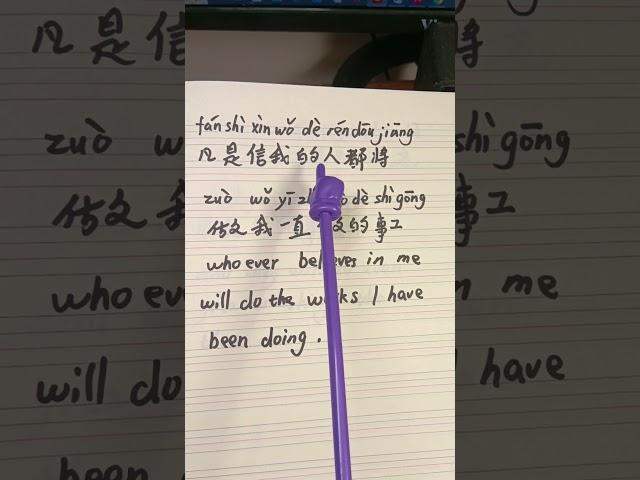 fán shì xìn wǒ dè rén dōu jiāng
凡是信我的人都将
zuò wǒ yī dè shì gōng
做我一直做的事工
whoever believes in me
will do the works I have
been doing.